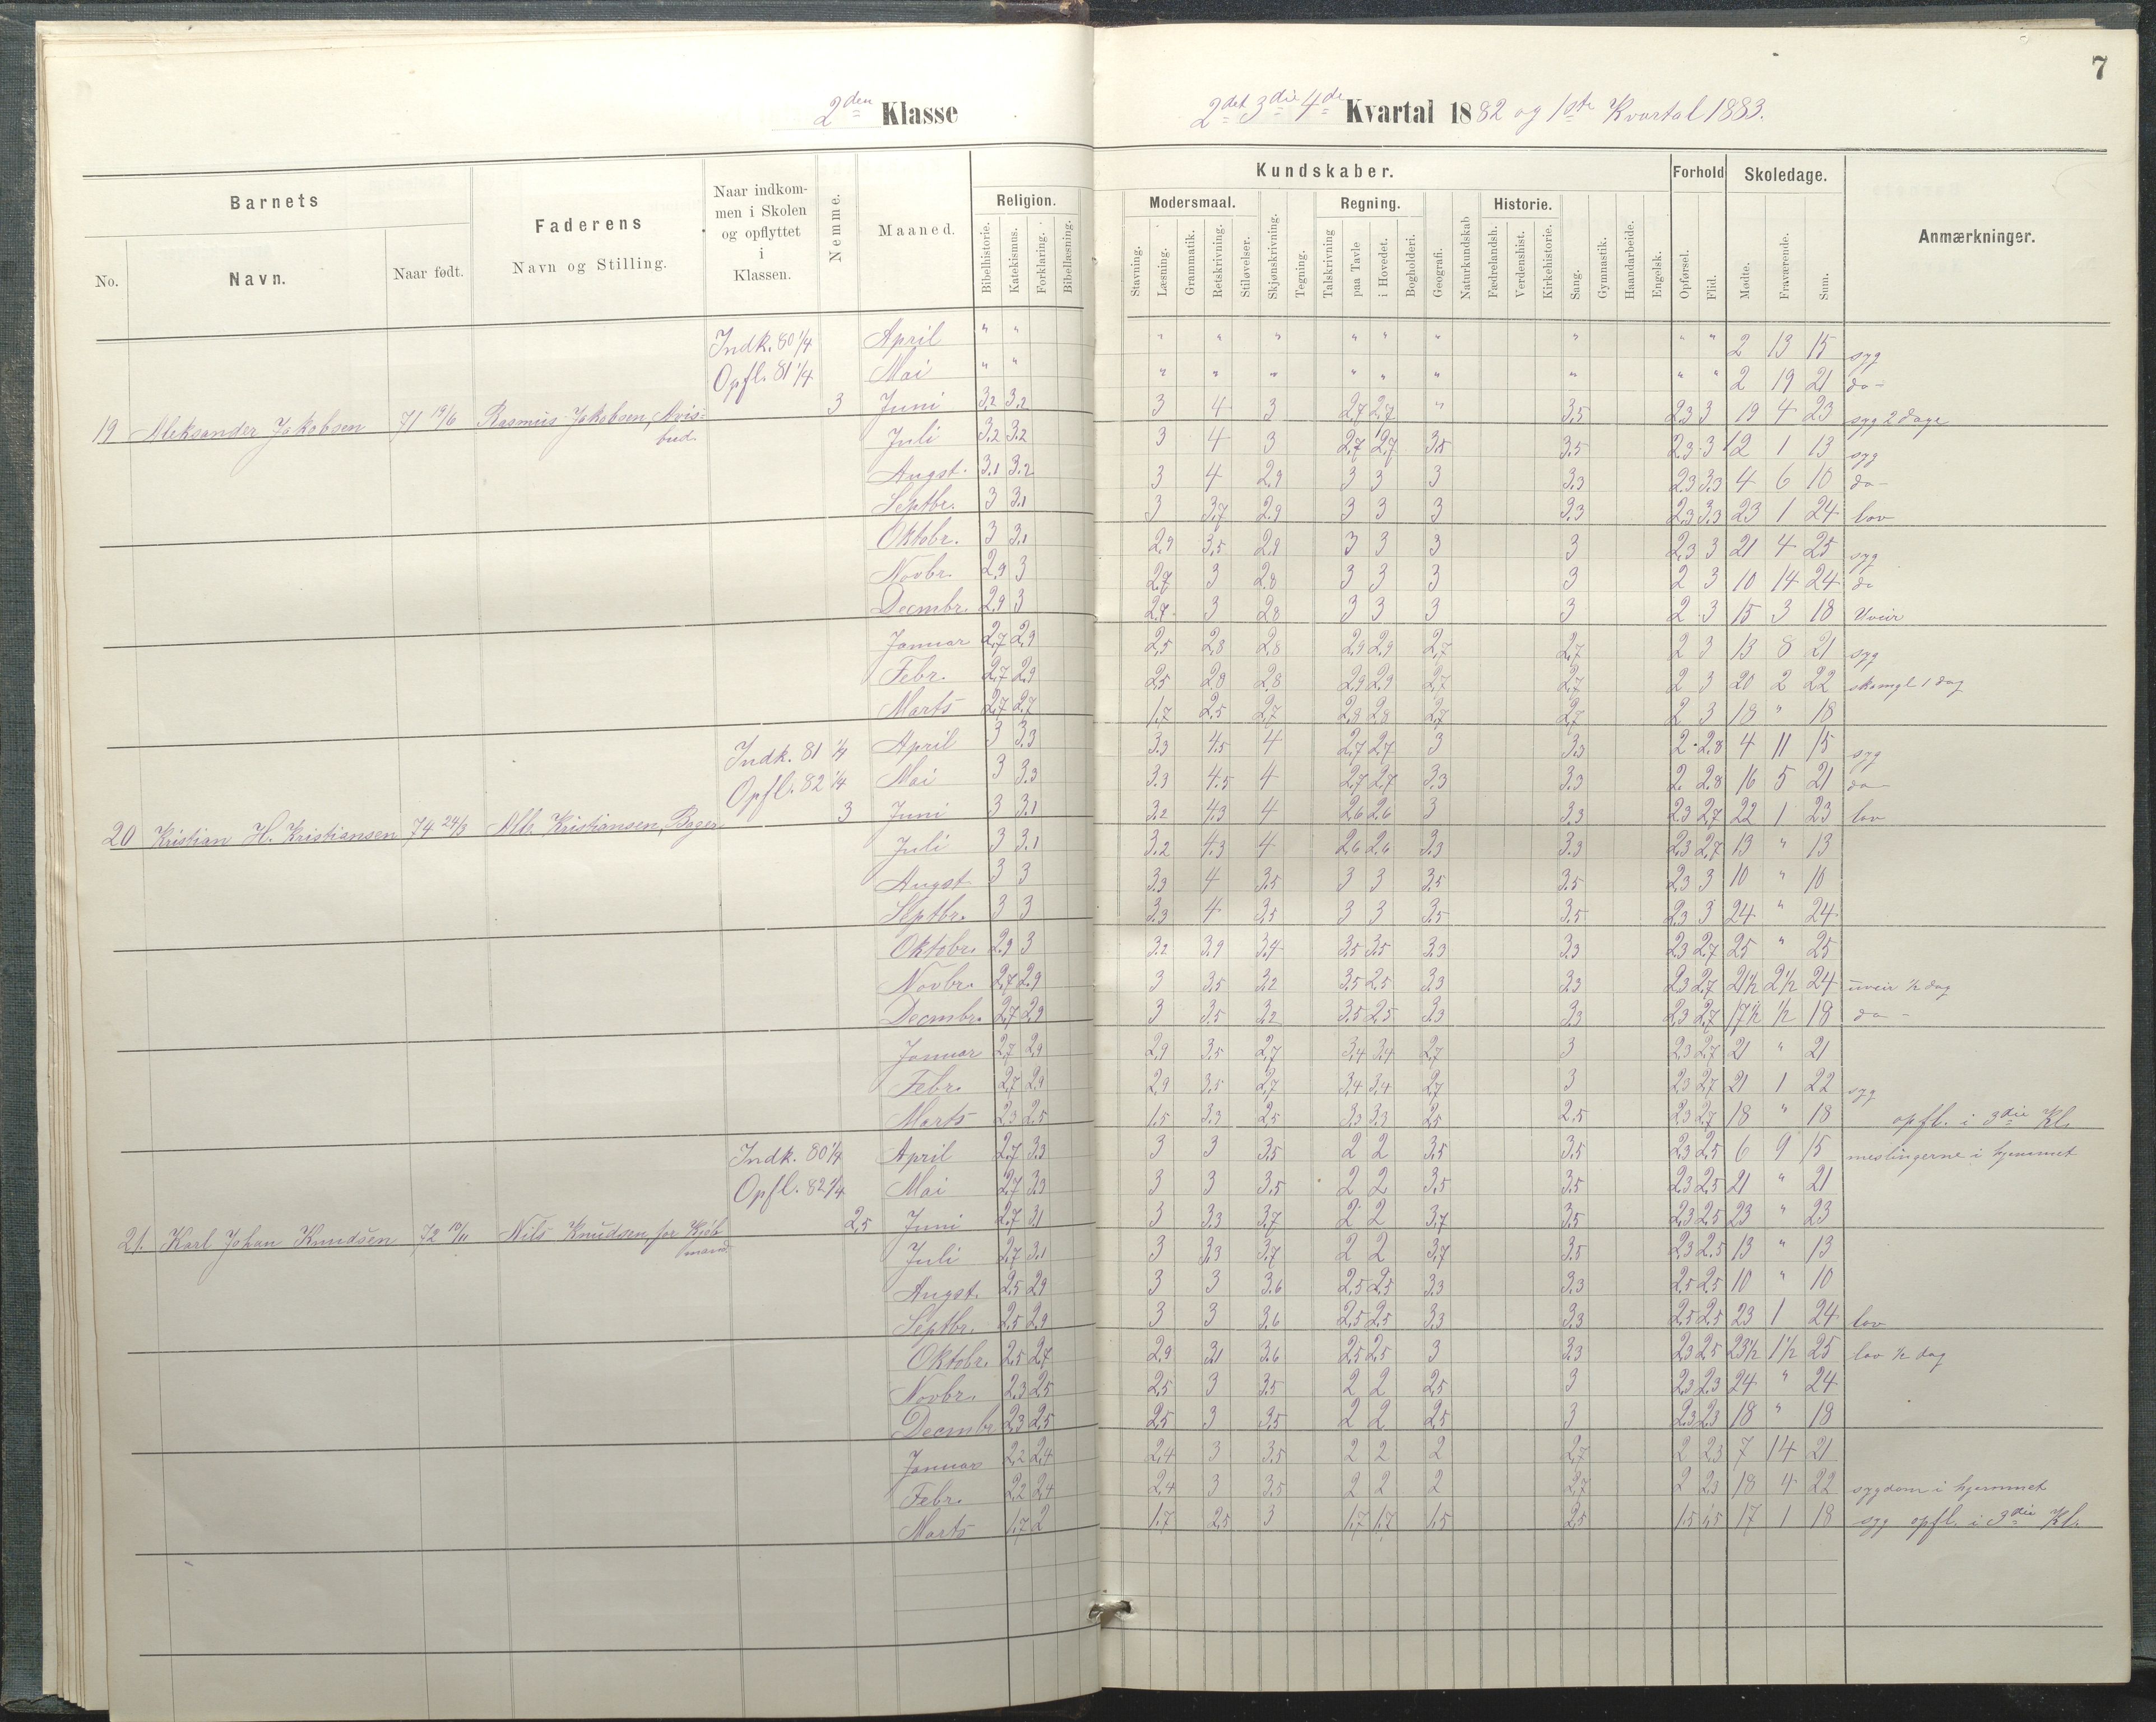 7
2den Klasse
2det 3die 4de Kvartal 1882 og 1ste Kvartal 1883.
Barnets
Faderens
Naar indkommen i Skolen og opflyttet i Klassen.
Nemme.
Maaned.
Religion.
Kundskaber.
Modersmaal. Regning. Historie.
Forhold Skoledage.
Anmærkninger.
No. Navn. Naar født. Navn og Stilling.
Bibelhistorie. Katekismus. Forklaring. Bibellæsning.
Stavning. Læsning. Grammatik. Retskrivning. Stiløvelser. Skjønskrivning. Tegning. Talskrivning paa Tavle i Hovedet. Bogholderi. Geografi. Naturkundskab Fædrelandsh. Verdenshist. Kirkehistorie. Sang. Gymnastik. Haandarbeide. Engelsk. Opførsel. Flid. Mødte. Fraværende. Sum.
19 Aleksander Jakobsen 71 19/6 Rasmus Jakobsen, Avisbud. Indk. 80 1/4 Opfl. 81 1/4 3
April " " " " " " " " " " " 2 13 15 syg
Mai " " " " " " " " " " " 2 19 21 do-
Juni 3,2 3,2 3 4 3 2,7 2,7 " 3,5 2,3 3 19 4 23 syg 2 dage
Juli 3,2 3,2 3 4 3 2,7 2,7 3,5 3,5 2,3 3 12 1 13 syg
Augst. 3,1 3,2 3 4 2,9 3 3 3 3,3 2,3 3,3 4 6 10 do-
Septbr. 3 3,1 3 3,7 2,9 3 3 3 3,3 2,3 3,3 23 1 24 lov
Oktobr. 3 3,1 2,9 3,5 2,9 3 3 3 3 2,3 3 21 4 25 syg
Novbr. 2,9 3 2,7 3 2,8 3 3 3 3 2 3 10 14 24 do
Decmbr. 2,9 3 2,7 3 2,8 3 3 3 3 2 3 15 3 18 Uveir
Januar 2,7 2,9 2,5 2,8 2,8 2,9 2,9 2,7 2,7 2 3 13 8 21 syg
Febr. 2,7 2,9 2,5 2,8 2,8 2,9 2,9 2,7 2,7 2 3 20 2 22 skomgl 1 dag
Marts 2,7 2,7 1,7 2,5 2,7 2,8 2,8 2,7 2,7 2 3 18 " 18
20 Kristian H. Kristiansen 74 24/3 Alb. Kristiansen, Bager Indk. 81 1/4 Opfl. 82 1/4 3
April 3 3,3 3,3 4,5 4 2,7 2,7 3 3,3 2 2,8 4 11 15 syg
Mai 3 3,3 3,3 4,5 4 2,7 2,7 3,3 3,3 2 2,8 16 5 21 do-
Juni 3 3,1 3,2 4,3 4 2,6 2,6 3 3,3 2,3 2,7 22 1 23 lov
Juli 3 3,1 3,2 4,3 4 2,6 2,6 3,3 3,3 2,3 2,7 13 " 13
Augst 3 3 3,3 4 3,5 3 3 3,5 3,5 2,3 3 10 " 10
Septbr. 3 3 3,3 4 3,5 3 3 3,5 3,5 2,3 3 24 " 24
Oktobr. 2,9 3 3,2 3,9 3,4 3,5 3,5 3,3 3,3 2,3 2,7 25 " 25
Novbr. 2,7 2,9 3 3,5 3,2 3,5 2,5 3,3 3,3 2,3 2,7 21 1/2 2 1/2 24 uveir 1/2 dag
Decmbr. 2,7 2,9 3 3,5 3,2 3,5 2,5 3,3 3,3 2,3 2,7 17 1/2 1/2 18 do -
Januar 2,7 2,9 2,9 3,5 2,7 3,4 3,4 2,7 3 2,3 2,7 21 " 21
Febr. 2,7 2,9 2,9 3,5 2,7 3,4 3,4 2,7 3 2,3 2,7 21 1 22 syg
Marts 2,3 2,5 1,5 3,3 2,5 3,3 3,3 2,5 2,5 2,3 2,7 18 " 18 opfl. i 3die Kl.
21. Karl Johan Knudsen 72 Nils Knudsen, før Kjøbmand Indk. 80 1/4 Opfl. 82 1/4 2,5
April 2,7 3,3 3 3 3,5 2 2 3,5 3,5 2,3 2,5 6 9 15 meslingerne i hjemmet
Mai 2,7 3,3 3 3 3,5 2 2 3,5 3,5 2,3 2,5 21 " 21
Juni 2,7 3,1 3 3,3 3,7 2 2 3,7 3,5 2,3 2,5 23 " 23
Juli 2,7 3,1 3 3,3 3,7 2 2 3,7 3,5 2,3 2,5 13 " 13
Augst. 2,5 2,9 3 3 3,6 2,5 2,5 3,3 3,3 2,5 2,5 10 " 10
Septbr. 2,5 2,9 3 3 3,6 2,5 2,5 3,3 3,3 2,5 2,5 23 1 24 lov
Oktobr. 2,5 2,7 2,9 3,1 3,6 2,5 2,5 3 3,3 2,3 2,5 23 1/2 1 1/2 25 lov 1/2 dag
Novbr. 2,3 2,5 2,5 3 3,5 2 2 2,5 3 2,3 2,3 24 " 24
Decmbr 2,3 2,5 2,5 3 3,5 2 2 2,5 3 2,3 2,3 18 " 18
Januar 2,2 2,4 2,4 3 3,5 2 2 2 2,7 2 2,3 7 14 21
Febr. 2,2 2,4 2,4 3 3,5 2 2 2 2,7 2 2,3 18 4 22 sygdom i hjemmet
Marts 1,7 2 1,7 2,5 3 1,7 1,7 1,5 2,5 1,5 1,5 17 1 18 syg opfl. i 3die Kl.